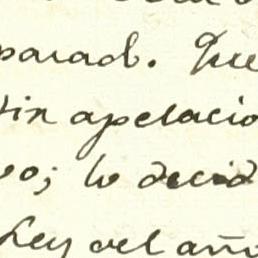 parad. Que
tin apelacio
vo; lo decid
Ley del año